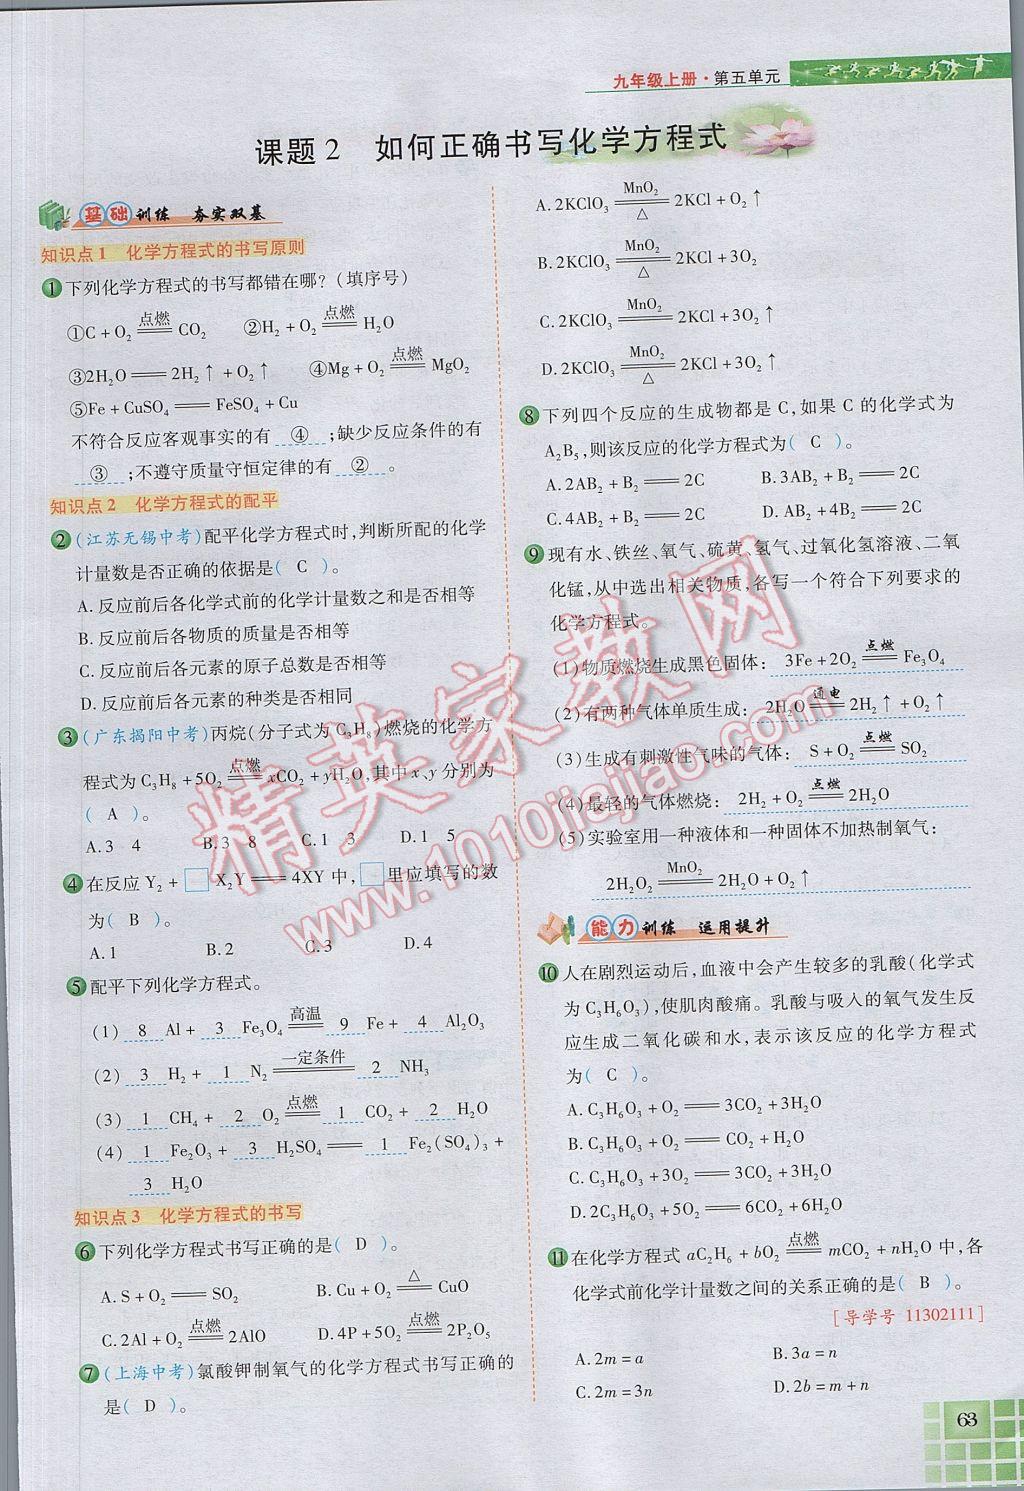 九年级上册·第五单元
课题2 如何正确书写化学方程式
基础训练 夯实双基
知识点1 化学方程式的书写原则
1 下列化学方程式的书写都错在哪?(填序号)
①C+O₂ 点燃═ CO₂ ②H₂+O₂ 点燃═ H₂O
③2H₂O═2H₂↑+O₂↑ ④Mg+O₂ 点燃═ MgO₂
⑤Fe+CuSO₄═FeSO₄+Cu
不符合反应客观事实的有 ④ ;缺少反应条件的有
③ ;不遵守质量守恒定律的有 ② 。
知识点2 化学方程式的配平
2 (江苏无锡中考)配平化学方程式时,判断所配的化学
计量数是否正确的依据是( C )。
A.反应前后各化学式前的化学计量数之和是否相等
B.反应前后各物质的质量是否相等
C.反应前后各元素的原子总数是否相等
D.反应前后各元素的种类是否相同
3 (广东揭阳中考)丙烷(分子式为C₃H₈)燃烧的化学方
程式为C₃H₈+5O₂ 点燃═ xCO₂+yH₂O,其中x、y分别为
( A )。
A.3 4 B.3 8 C.1 3 D.1 5
4 在反应Y₂+□X₂Y═4XY中,□里应填写的数
为( B )。
A.1 B.2 C.3 D.4
5 配平下列化学方程式。
(1) 8 Al+ 3 Fe₃O₄ 高温═ 9 Fe+ 4 Al₂O₃
(2) 3 H₂+ 1 N₂ 一定条件═ 2 NH₃
(3) 1 CH₄+ 2 O₂ 点燃═ 1 CO₂+ 2 H₂O
(4) 1 Fe₂O₃+ 3 H₂SO₄═ 1 Fe₂(SO₄)₃+
3 H₂O
知识点3 化学方程式的书写
6 下列化学方程式书写正确的是( D )。
A.S+O₂═SO₂ B.Cu+O₂ △═ CuO
C.2Al+O₂ 点燃═ 2AlO D.4P+5O₂ 点燃═ 2P₂O₅
7 (上海中考)氯酸钾制氧气的化学方程式书写正确的
是( D )。
A.2KClO₃ MnO₂═△ 2KCl+O₂↑
B.2KClO₃ MnO₂═△ 2KCl+3O₂
C.2KClO₃ MnO₂═ 2KCl+3O₂↑
D.2KClO₃ MnO₂═△ 2KCl+3O₂↑
8 下列四个反应的生成物都是C,如果C的化学式为
A₂B₅,则该反应的化学方程式为( C )。
A.2AB₂+B₂═2C B.3AB₂+B₂═2C
C.4AB₂+B₂═2C D.AB₂+4B₂═2C
9 现有水、铁丝、氧气、硫黄、氢气、过氧化氢溶液、二氧
化锰,从中选出相关物质,各写一个符合下列要求的
化学方程式。
(1)物质燃烧生成黑色固体: 3Fe+2O₂ 点燃═ Fe₃O₄
(2)有两种气体单质生成: 2H₂O 通电═ 2H₂↑+O₂↑
(3)生成有刺激性气味的气体: S+O₂ 点燃═ SO₂
(4)最轻的气体燃烧: 2H₂+O₂ 点燃═ 2H₂O
(5)实验室用一种液体和一种固体不加热制氧气:
2H₂O₂ MnO₂═ 2H₂O+O₂↑
能力训练 运用提升
10 人在剧烈运动后,血液中会产生较多的乳酸(化学式
为C₃H₆O₃),使肌肉酸痛。乳酸与吸入的氧气发生反
应生成二氧化碳和水,表示该反应的化学方程式
为( C )。
A.C₃H₆O₃+O₂═3CO₂+3H₂O
B.C₃H₆O₃+O₂═CO₂+H₂O
C.C₃H₆O₃+3O₂═3CO₂+3H₂O
D.2C₃H₆O₃+5O₂═6CO₂+6H₂O
11 在化学方程式aC₂H₆+bO₂ 点燃═ mCO₂+nH₂O中,各
化学式前化学计量数之间的关系正确的是( B )。
[导学号 11302111]
A.2m=a B.3a=n
C.2m=3n D.2b=m+n
63
精英家教网
www.1010jiajiao.com